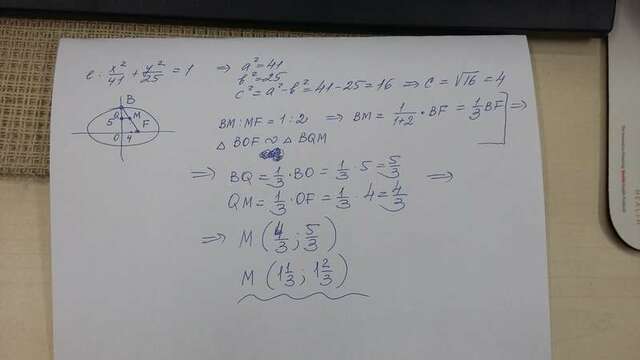 ℓ: x²/41 + y²/25 = 1 ⇒ a² = 41
b² = 25
c² = a² - b² = 41 - 25 = 16 ⇒ c = √16 = 4
B
Q
M
5
F
O
4
BM : MF = 1 : 2 ⇒ BM = 1/(1+2) · BF = 1/3 BF ⇒
△ BOF ∾ △ BQM
⇒ BQ = 1/3 · BO = 1/3 · 5 = 5/3 ⇒
QM = 1/3 · OF = 1/3 · 4 = 4/3
⇒ M (4/3 ; 5/3)
M (1 1/3 ; 1 2/3)